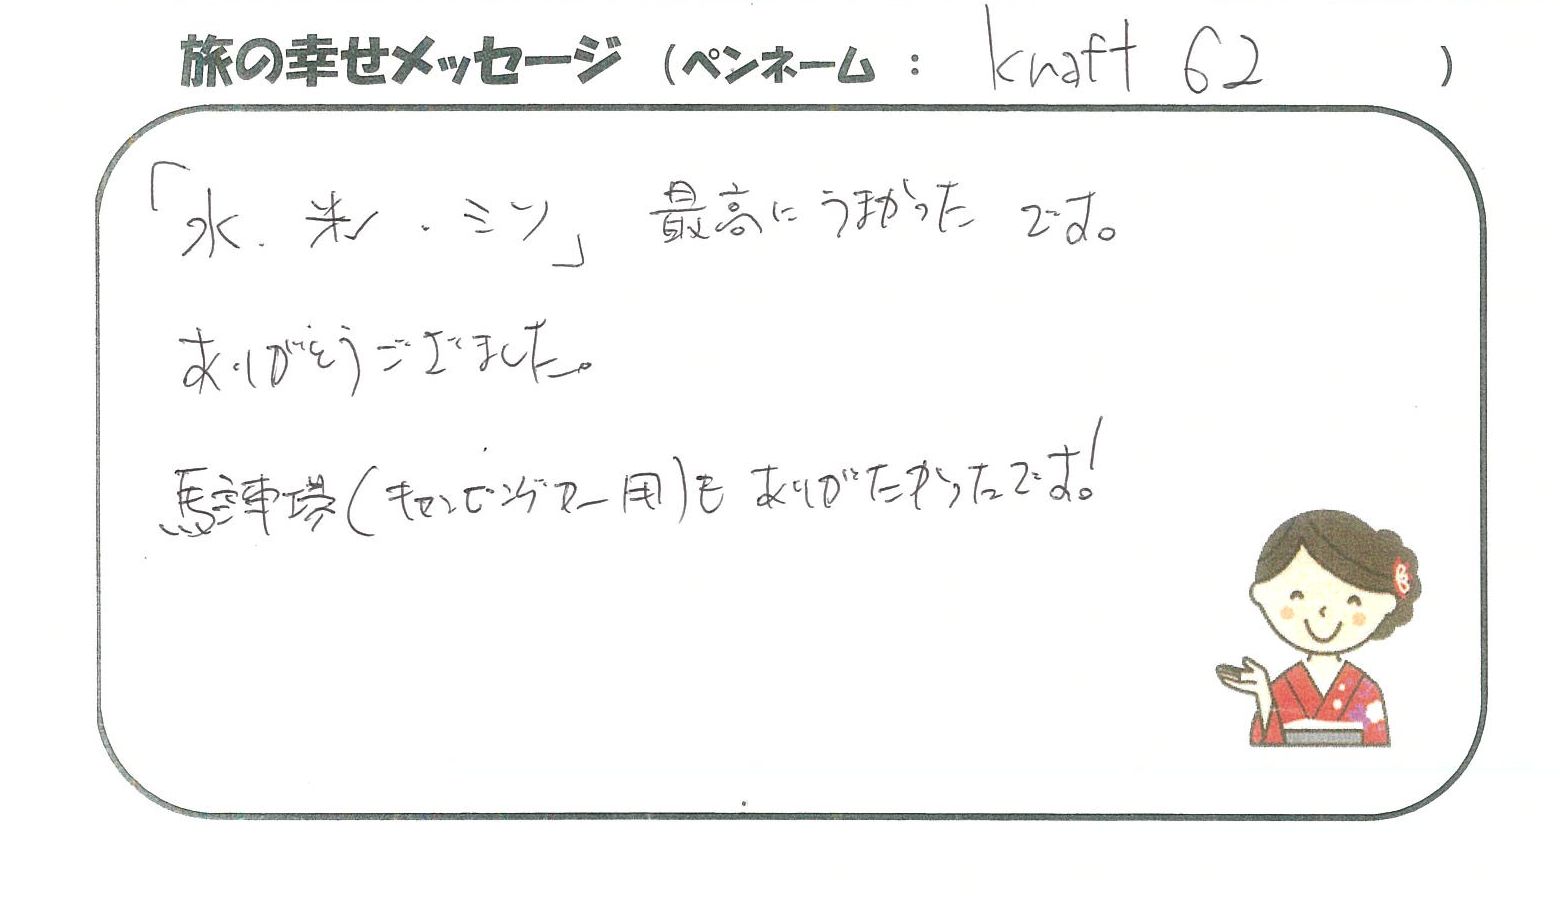 旅の幸せメッセージ (ペンネーム： knaft 62 )
「水．米．ミソ」 最高にうまかった です。
ありがとうございました。
駐車場(キャンピングカー用)も ありがたかったです!